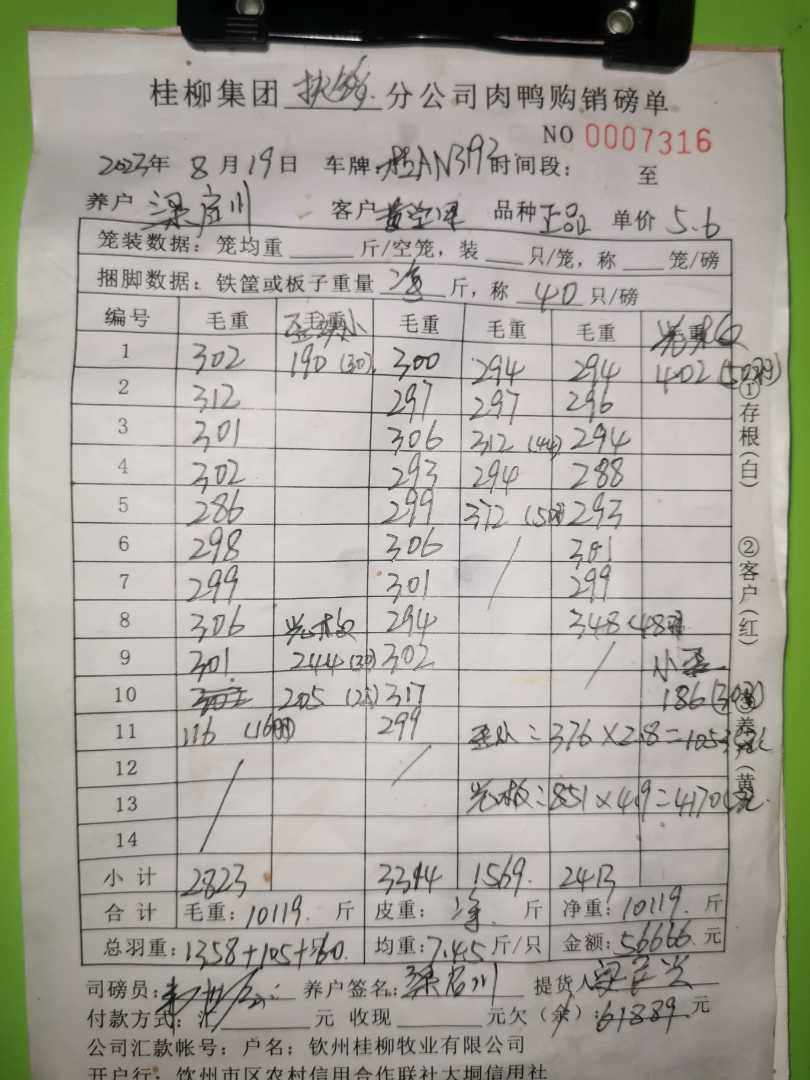 桂柳集团 分公司肉鸭购销磅单
NO 0007316
2023年 8月19日 车牌: AN3193 时间段: 至
养户 梁官川 客户 黄 品种 正品 单价 5.6
笼装数据: 笼均重 斤/空笼, 装 只/笼, 称 笼/磅
捆脚数据: 铁筐或板子重量 净 斤, 称 40 只/磅
编号 毛重 毛重 毛重 毛重 毛重 毛重
1 302 190 (30) 300 294 294 402 (50羽)
2 312 297 297 296
3 301 306 312 (44) 294
4 302 293 294 288
5 286 299 372 (50) 293
6 298 306 / 301
7 299 301 299
8 306 294 348 (48羽)
9 301 244 (30) 302 / 小
10 205 (25) 317 186 (30羽)
11 116 (16羽) 299 = 376 × 2.8 = 1053元
12 / /
13 = 851 × 4.9 = 4170元
14
小计 2823 3394 1569. 2413
合计 毛重: 10119. 斤 皮重: 净. 斤 净重: 10119. 斤
总羽重: 1358+105+60. 均重: 7.45 斤/只 金额: 56666. 元
司磅员: 养户签名: 梁官川 提货人
付款方式: 汇 元 收现 元欠(余): 61889 元
公司汇款帐号: 户名: 钦州桂柳牧业有限公司
开户行: 钦州市区农村信用合作联社大垌信用社
①存根(白) ②客户(红) ③养户(黄)